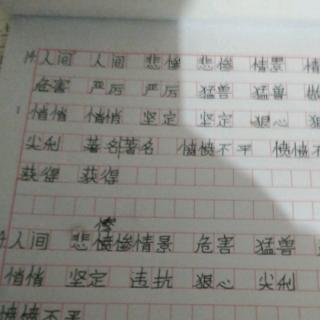 14.人间 人间 悲惨 悲惨 情景 情
危害 严厉 严厉 猛兽 猛兽
悄悄 悄悄 坚定 坚定 狠心 狠
尖利 著名 著名 愤愤不平 愤愤不
获得 获得
惨
人间 悲惨情景 危害 猛兽
悄悄 坚定 违抗 狠心 尖利
愤愤不平